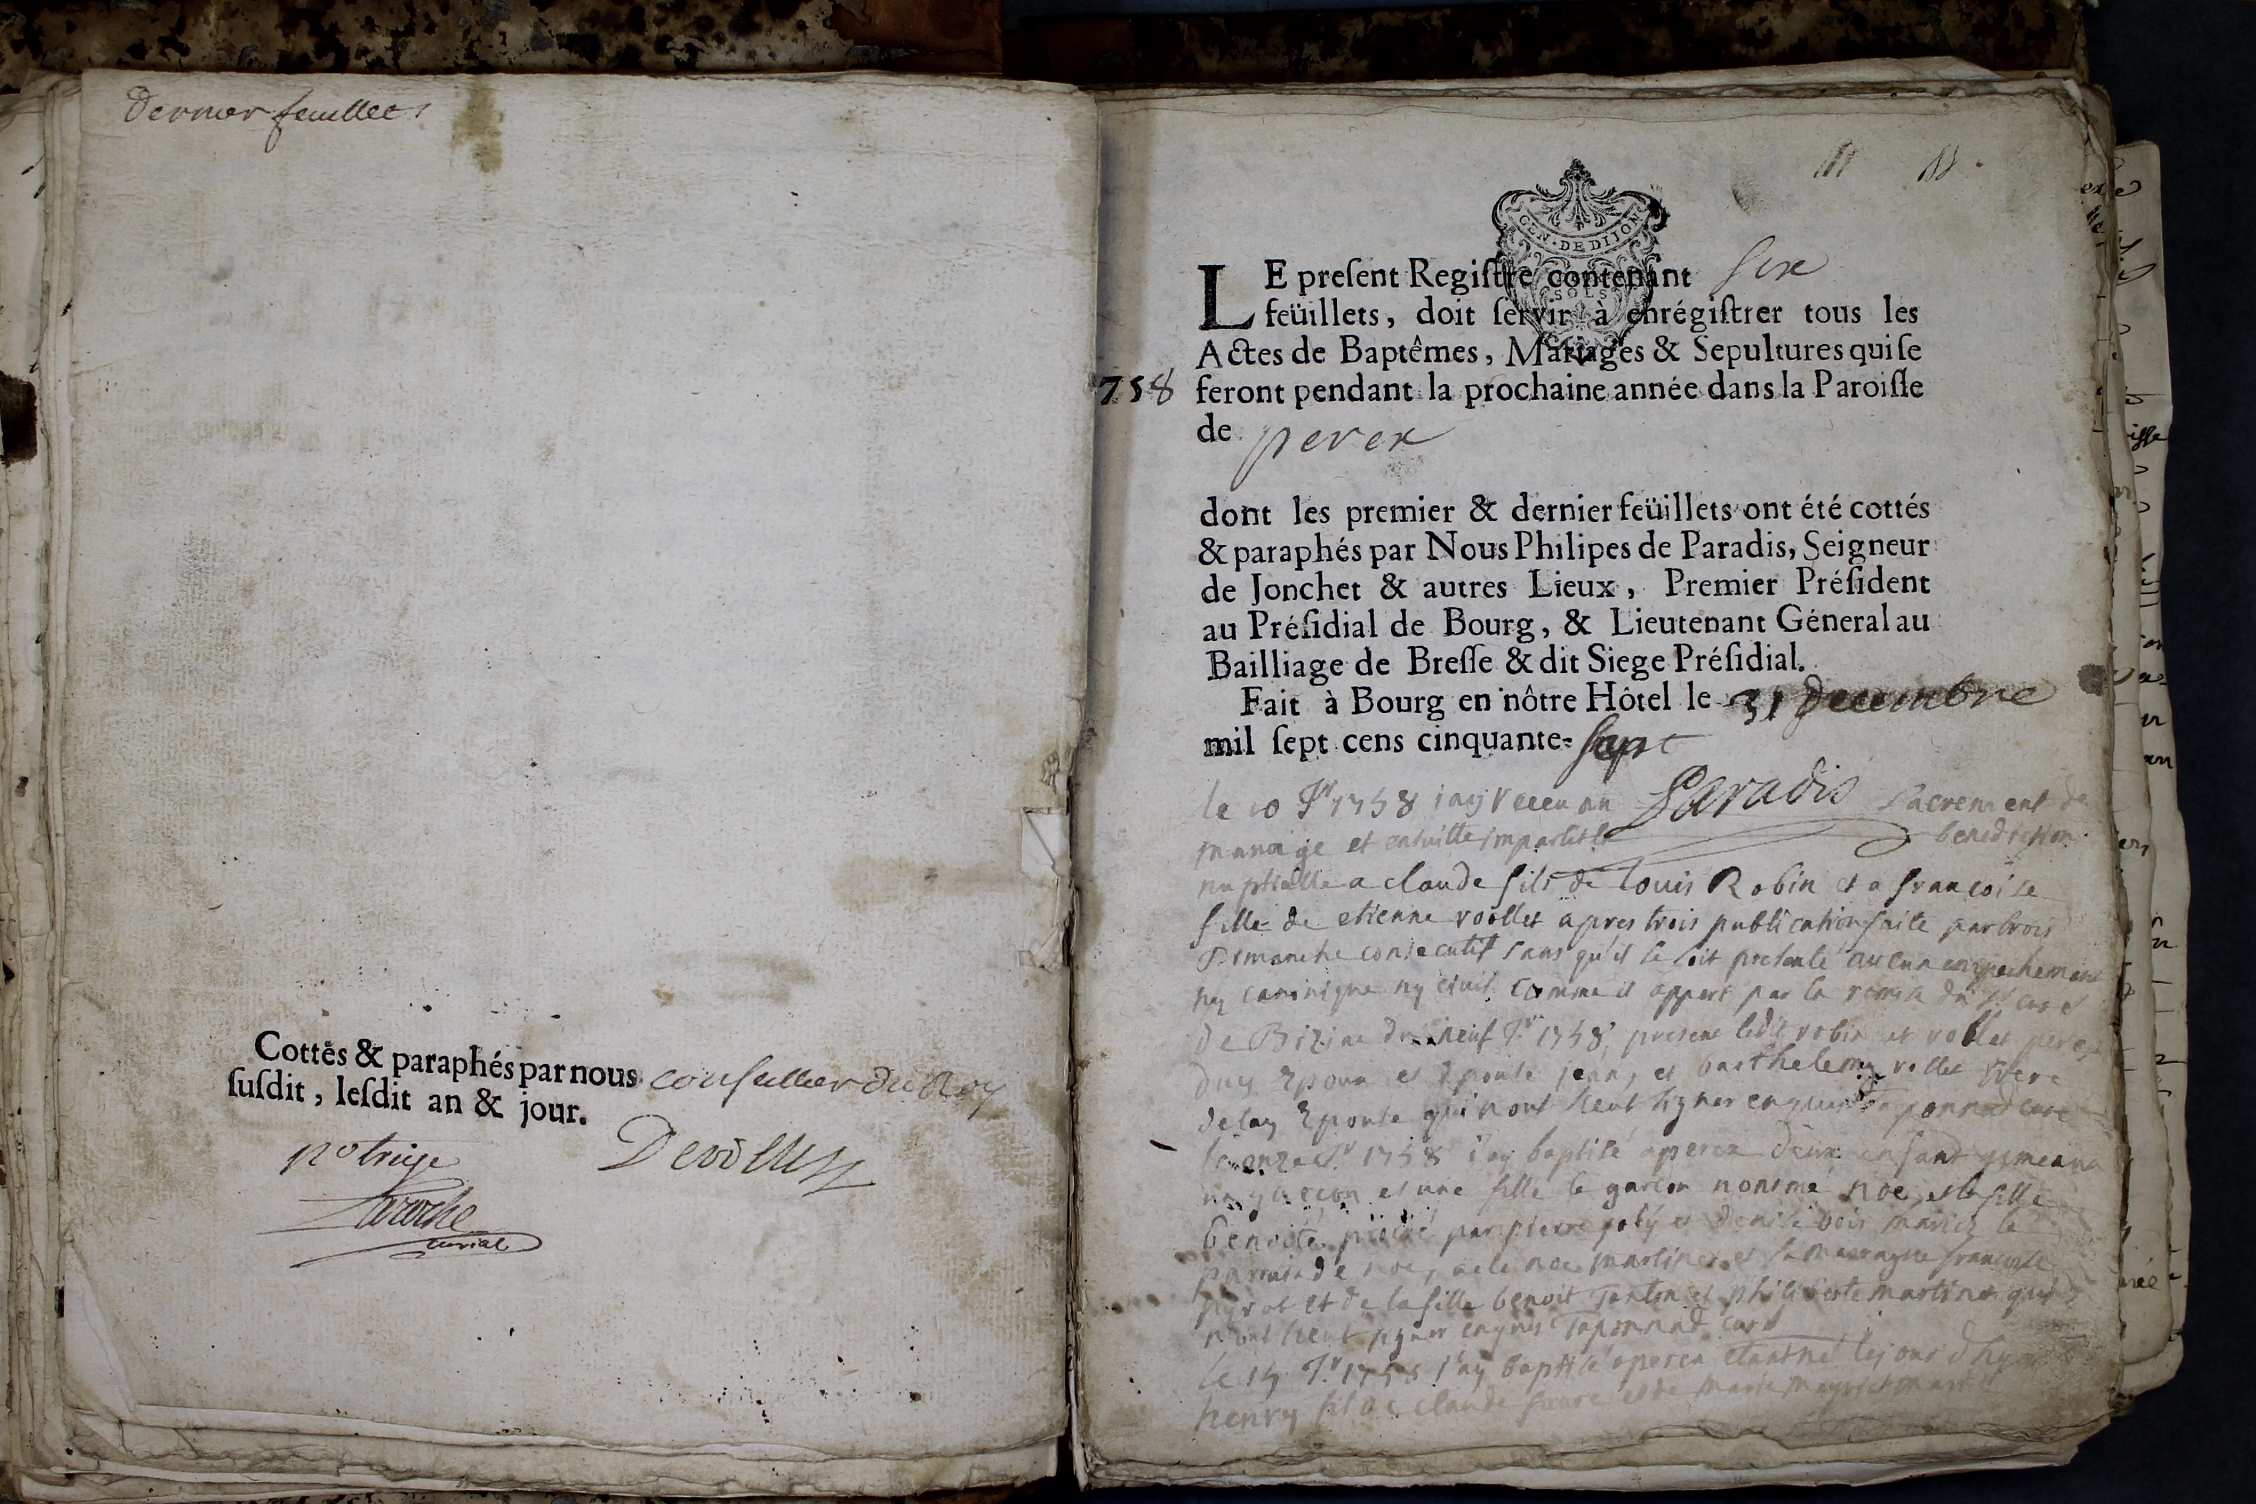 Dernier feuillet
Cottés & paraphés par nous conseiller du Roy
ſuſdit, leſdit an & jour.
Laroche
curial
GEN · DE DIJON
SOLS
LE preſent Regiſtre contenant six
feüillets, doit ſervir à enrégiſtrer tous les
Actes de Baptêmes, Mariages & Sepultures qui ſe
758 feront pendant la prochaine année dans la Paroiſſe
de perex
dont les premier & dernier feüillets ont été cottés
& paraphés par Nous Philipes de Paradis, Seigneur
de Jonchet & autres Lieux, Premier Préſident
au Préſidial de Bourg, & Lieutenant Géneral au
Bailliage de Breſſe & dit Siege Préſidial.
Fait à Bourg en nôtre Hôtel le 31 decembre
mil ſept cens cinquante-sept
Paradis
le 10 Jr 1758 iay receu au Sacrement de
mariage et ensuitte impartit la benediction
nuptialle a claude fils de Louis Robin et a francoise
fille de etienne vollet apres trois publication faite par trois
Dimanche consecutif sans qu'il se soit presenté aucun empechement
ny canonique ny civil comme il appert par la remise du Sr curé
de Bizia du neuf Jr 1758, present ledit robin et vollet pere
duy Epoux et Epouse jean, et barthelemy vollet frere
delay Epouse qui n'ont sceut signer enquis Taponnad curé
le onze Jr 1758 i'ay baptisé a perex deux enfant
un garcon et une fille le garcon nommé noe, et la fille
benoite par pierre et denise bois mariez le
parrain de noe, noe martinet et la marraine francoise
pyrot et de la fille benoit et philiberte martinet qui
n'ont sceut signer enquis Taponnad curé
le Jr 1758 j'ay baptisé a perex etant né le jour d'hyer
henry fil de claude et de marie